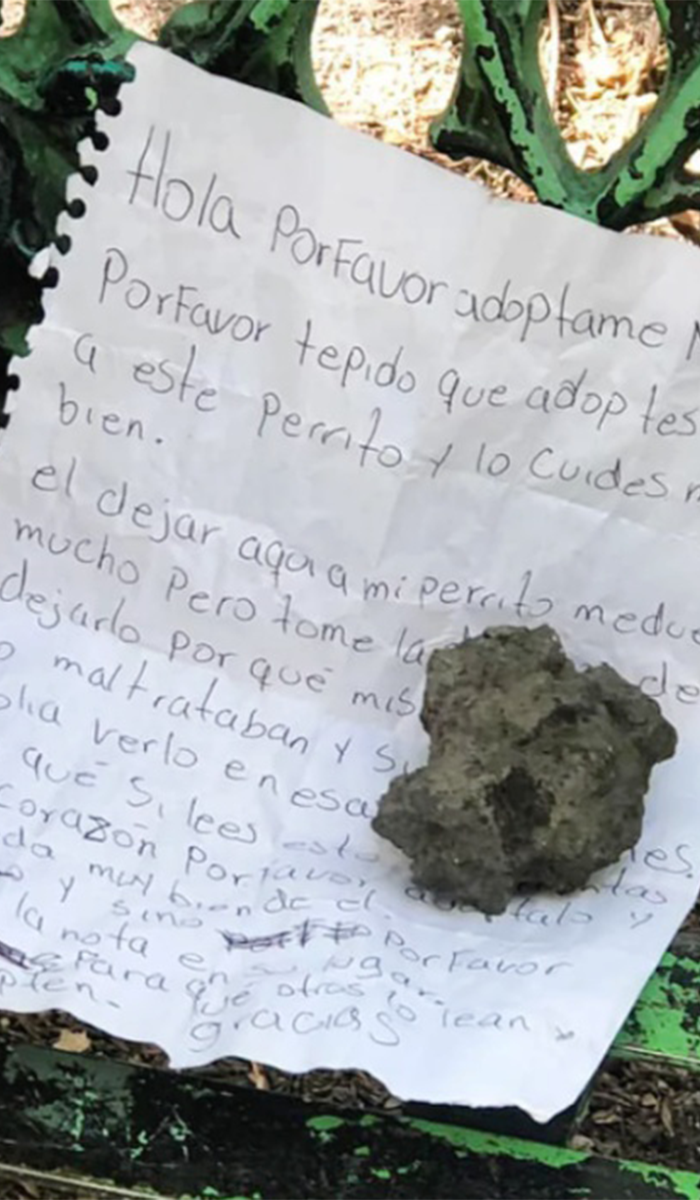 Hola PorFavor adoptame
PorFavor tepido que adoptes
a este Perrito y lo Cuides
bien.
el dejar aqui a mi perrito
mucho Pero tome la
dejarlo por qué mis
maltrataban y
verlo en esa
qué Si lees esto
corazón Por favor
muy bien de el
y sino PorFavor
la nota en su lugar.
Para qué otros lo lean y
gracias